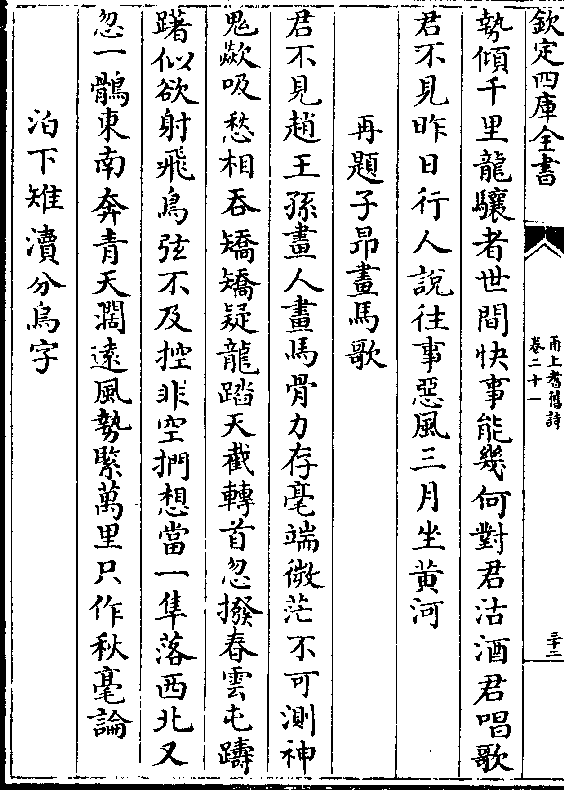 欽定四庫全書
甬上耆舊詩
卷二十一
三十二
勢傾千里龍驤者世間快事能幾何對君沽酒君唱歌
君不見昨日行人說往事惡風三月坐黄河
再題子昻畫馬歌
君不見趙王孫畫人畫馬骨力存毫端微茫不可測神
鬼歘吸愁相吞矯矯疑龍踏天截轉首忽撥春雲屯躊
躇似欲射飛鳥弦不及控非空捫想當一隼落西北又
忽一鶻東南奔青天濶遠風勢緊萬里只作秋毫論
泊下雉瀆分烏字